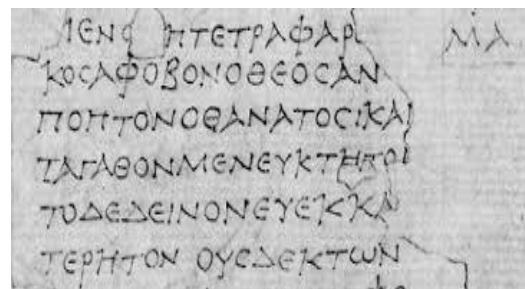 ΙΕΝϹ ΠΤΕΤΡΑΦΑΡ
ΚΟϹΑΦΟΒΟΝΟΘΕΟϹΑΝ
ΠΟΠΤΟΝΟΘΑΝΑΤΟϹΙΚΑΙ
ΤΑΓΑΘΟΝΜΕΝΕΥΚΤΗΠΟΙ
ΤΟΔΕΔΕΙΝΟΝΕΥΕΚΚΑ
ΤΕΡΗΤΟΝ ΟΥϹΔΕΚΤΩΝ